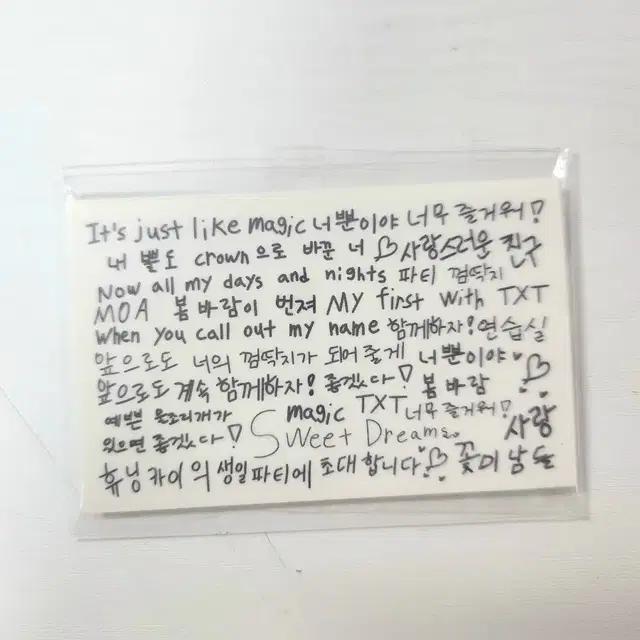 It's just like magic 너뿐이야 너무 즐거워!
내 뿔도 crown으로 바꾼 너 사랑스러운 친구
Now all my days and nights 파티 껌딱지
MOA 봄바람이 번져 MY first with TXT
When you call out my name 함께하자! 연습실
앞으로도 너의 껌딱지가 되어줄게 너뿐이야
앞으로도 계속 함께하자! 좋겠다! 봄바람
예쁜 magic TXT 너무 즐거워! 사랑
있으면 좋겠다! Sweet Dreams
휴닝카이의 생일파티에 초대합니다 꽃미남